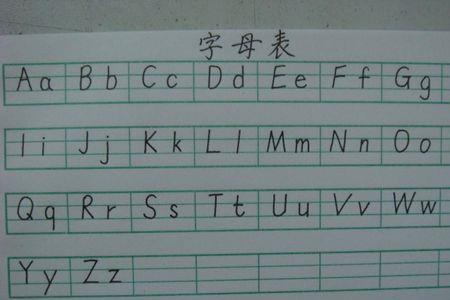 字母表
Aa Bb Cc Dd Ee Ff Gg
Ii Jj Kk Ll Mm Nn Oo
Qq Rr Ss Tt Uu Vv Ww
Yy Zz